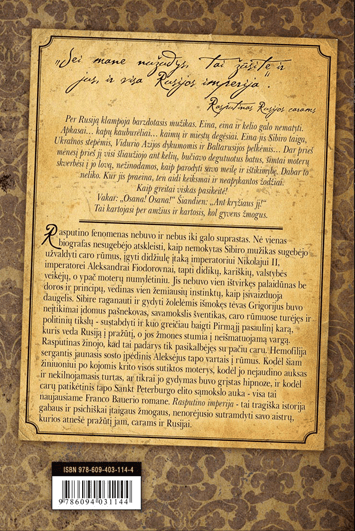 „Jei mane nužudys, tai žūsite ir
jus, ir visa Rusijos imperija“.
Rasputinas Rusijos carams
Per Rusiją klampoja barzdotasis mužikas. Eina, eina ir kelio galo nematyti.
Apkasai... kapų kauburėliai... kaimų ir miestų degėsiai. Eina jis Sibiro taiga,
Ukrainos stepėmis, Vidurio Azijos dykumomis ir Baltarusijos pelkėmis... Dar prieš
mėnesį prieš jį visi šliaužiojo ant kelių, bučiavo degutuotus batus, šimtai moterų
skverbėsi į jo lovą, nežinodamos, kaip parodyti savo meilę ir ištikimybę. Dabar to
neliko. Kur jis praeina, ten aidi keiksmai ir neapykantos žodžiai.
Kaip greitai viskas pasikeitė!
Vakar: „Osana! Osana!“ Šiandien: „Ant kryžiaus jį!“
Tai kartojasi per amžius ir kartosis, kol gyvens žmogus.
Rasputino fenomenas nebuvo ir nebus iki galo suprastas. Nė vienas
biografas nesugebėjo atskleisti, kaip nemokytas Sibiro mužikas sugebėjo
užvaldyti caro rūmus, įgyti didžiulę įtaką imperatoriui Nikolajui II,
imperatorei Aleksandrai Fiodorovnai, tapti didikų, kariškių, valstybės
veikėjų, o ypač moterų numylėtiniu. Jis nebuvo vien ištvirkęs palaidūnas be
doros ir principų, vedinas vien žemiausių instinktų, kaip įsivaizduoja
daugelis. Sibire raganauti ir gydyti žolelėmis išmokęs tėvas Grigorijus buvo
neįtikimai įdomus pašnekovas, savamokslis šventikas, caro rūmuose turėjęs ir
politinių tikslų - sustabdyti ir kuo greičiau baigti Pirmąjį pasaulinį karą,
kuris veda Rusiją į pražūtį, o jos žmones stumia į neišmatuojamą vargą.
Rasputinas žinojo, kad tai padarys tik pasikalbėjęs su pačiu caru. Hemofilija
sergantis jaunasis sosto įpėdinis Aleksejus tapo vartais į rūmus. Kodėl šiam
žiniuoniui po kojomis krito visos sutiktos moterys, kodėl jo nejaudino auksas
ir nekilnojamasis turtas, ar tikrai jo gydymas buvo grįstas hipnoze, ir kodėl
carų patikėtinis tapo Sankt Peterburgo elito sąmokslo auka - visa tai
naujausiame Franco Bauerio romane. Rasputino imperija - tai tragiška istorija
gabaus ir psichiškai įtaigaus žmogaus, nenorėjusio sutramdyti savo aistrų,
kurios atnešė pražūtį jam, carams ir Rusijai.
ISBN 978-609-403-114-4
9 786094 031144